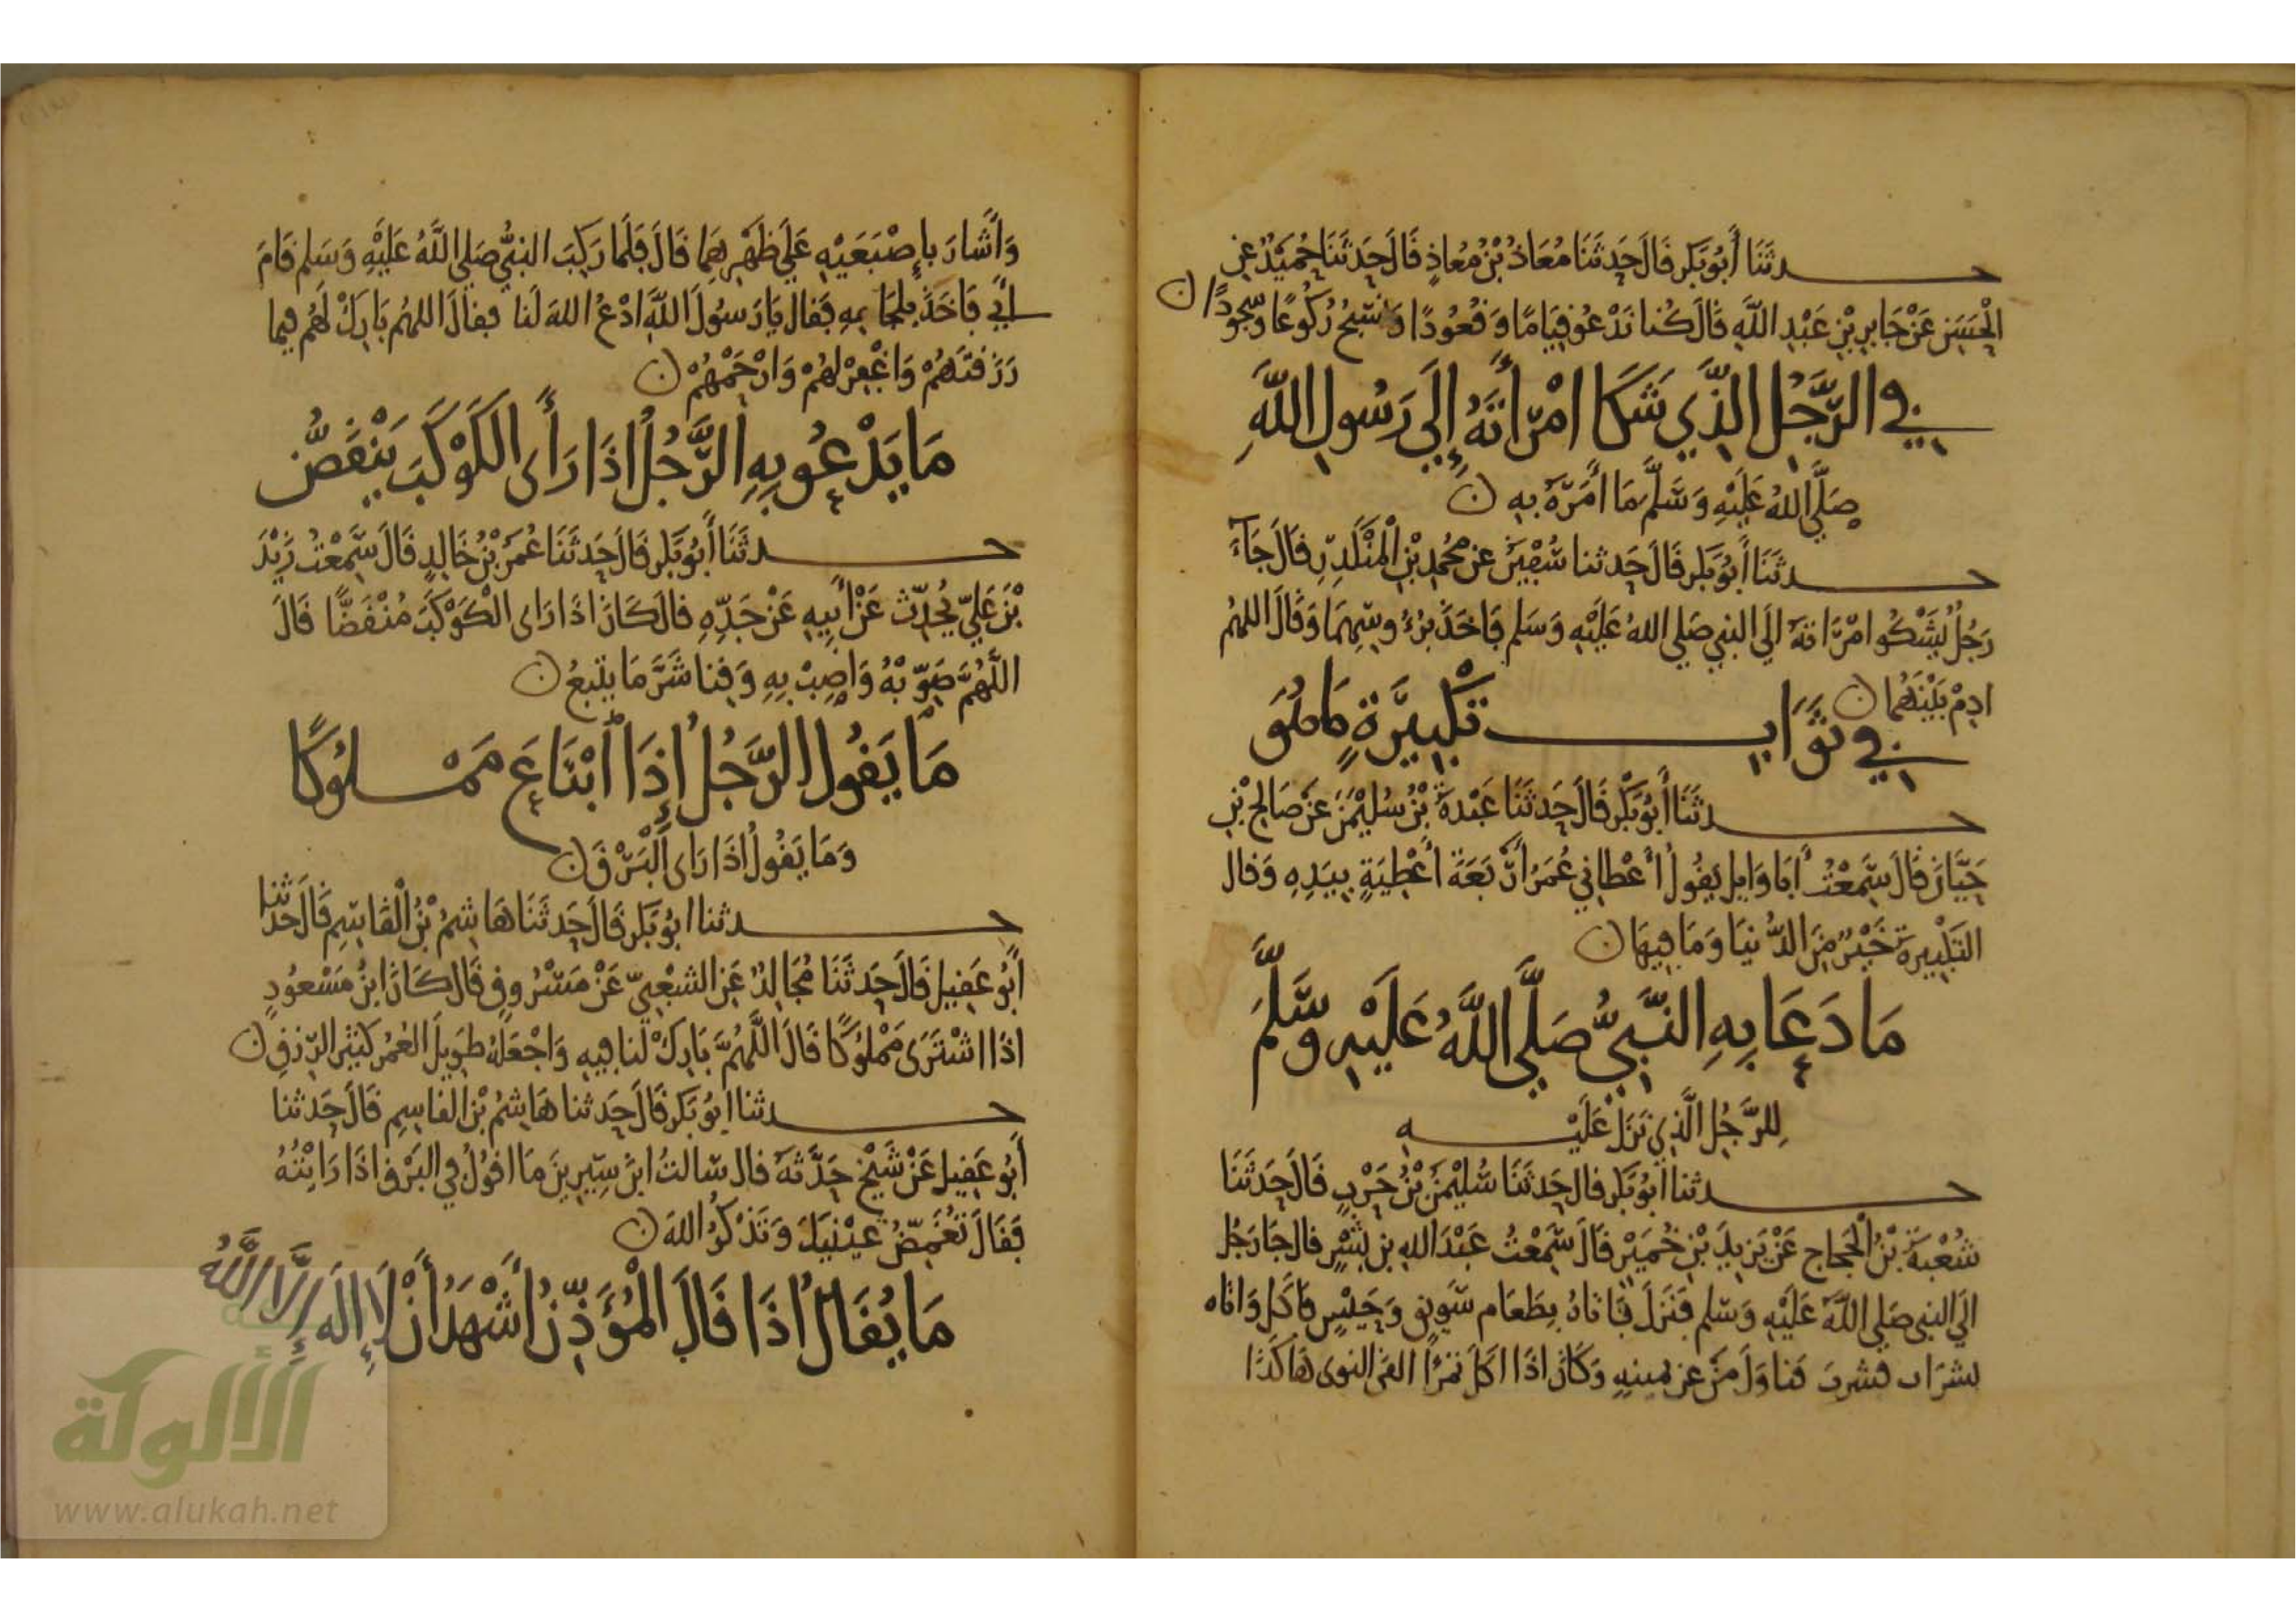 حدثَنَا أَبُو بَكر قَالَ حَدثَنَا مُعَاذُ بْنُ مُعاذٍ قَالَ حَدثَنَا حُمَيْدٌ عَنِ
الْحَسَنِ عَنْ جَابِرِ بْنِ عَبْدِ اللَّهِ قَالَ كُنا نَدْعُو قِيَامًا وَقُعُودًا وَنُسَبِّحُ رُكُوعًا وَسُجُودًا ن
فِي الرَّجُلِ الَّذِي شَكَا امْرَأَتَهُ إِلَى رَسُولِ اللَّهِ
صَلَّى اللهُ عَلَيْهِ وَسَلَّمَ مَا أَمَرَهُ بِهِ ن
حدثَنَا أَبُو بَكر قَالَ حَدثنا سُفْيَنُ عَن مُحمدِ بْنِ الْمُنْكَدِرِ قَالَ جَآءَ
رَجُلٌ يَشْكُوا امْرَاتَهُ الَى النبي صَلى اللهُ عَلَيْهِ وَسَلم فَاخَذَ بِرُءُوسِهِمَا وَقَالَ اللهُم
ادِمْ بَيْنَهُمَا ن
فِي ثَوَابِ تَكْبِيرَةٍ مَا هُوَ
حدثَنَا أَبُو بَكْر قَالَ حَدثَنَا عَبْدَةُ بْنُ سُلَيْمَنَ عَنْ صَالِحِ بْنِ
حَيَّانَ قَالَ سَمِعْتُ أَبَا وَايِلٍ يَقُولُ أَعْطانِي عُمَرُ أَرْبَعَةَ أَعْطِيَةٍ بِيَدِهِ وَقال
التَكْبِيرَةُ خَيْرٌ مِنَ الدُّنيَا وَمَا فِيهَا ن
مَا دَعَا بِهِ النَّبِيُّ صَلَّى اللَّهُ عَلَيْهِ وَسَّلَّمَ
لِلرَّجُلِ الَّذِي نَزَلَ عَلَيْهِ
حدثنا أبُو بَكر قال حَدثَنَا سُلَيْمَنُ بْنُ حَرْبٍ قَالَ حَدثَنَا
شُعْبَةُ بْنُ الْحَجاج عَنْ يَزِيدَ بْنِ خُمَيْرٍ قَالَ سَمِعْتُ عَبْدَ اللهِ بن بُسْرٍ قال جَا رَجُل
الَى النبي صَلى اللَّهُ عَلَيْهِ وَسَلم فَنَزَلَ فَاتاهُ بِطَعَام سَوِيق وَحَيْسٍ فَاكَل وَاتاه
بشرَاب فشربَ فناوَلَ مَنْ عن يمينِهِ وَكَانَ اذَا اكَلَ تَمْرًا القَى النوى هَاكَذَا
وَأَشارَ بِإِصْبَعَيْهِ عَلَى ظَهْرِهِمَا قَالَ فَلَما رَكِبَ النبِيُّ صَلى اللَّهُ عَلَيْهِ وَسَلم قَامَ
أَبِي فَاخَذَ بِلِجَامِهِ فَقالَ يَا رَسُولَ اللَّهِ ادْعُ اللهَ لَنا فقالَ اللهُم بَارِكْ لَهُم فيما
رَزَقتَهُمْ وَاغْفِرْ لهُمْ وَارْحَمْهُمْ ن
مَا يَدْعُو بِهِ الرَّجُلُ اذَا رَأَى الكَوْكَبَ يَنْقَضُّ
حدثَنَا أَبُو بَكر قَالَ حَدثَنَا عُمَرُ بْنُ خَالِدٍ قَالَ سَمِعْتُ زَيْدَ
بْنَ عَلِيّ يُحَدِّث عَنْ أَبِيهِ عَنْ جَدِّهِ قالَ كَانَ اذَا رَاى الْكَوْكَبَ مُنْقَضًّا قَالَ
اللَّهُمَّ صَوِّبْهُ وَاصِبْ بِهِ وَقِنا شَرَّ مَا يتْبعُ ن
مَا يَقُولُ الرَّجُلُ إِذَا ابْتَاعَ مَمْلُوكًا
وَمَا يَقُولُ اذَا رَاى الْبَرْقَ ن
حدثنا ابُو بَكر قَالَ حَدثَنَا هَاشِمُ بْنُ الْقَاسِمِ قَالَ حَدثنا
أَبُو عَقِيل قَالَ حَدثَنَا مُجَالِدٌ عَنِ الشعْبِيِّ عَنْ مَسْرُوقٍ قَالَ كَانَ ابْنُ مَسْعُودٍ
اذَا اشْتَرَى مَمْلُوكًا قَالَ اللَّهُمَّ بَارِكْ لنا فِيهِ وَاجْعَلهُ طوِيلَ العُمُرِ كَثيرَ الرِّزقِ ن
حدثنا ابُو بَكر قَالَ حَدثنا هَاشِمُ بْنُ القاسِمِ قَالَ حَدثنا
أَبُو عَقِيل عَنْ شَيْخٍ حَدَّثهُ قال سَالتُ ابنَ سِيرِينَ مَا اقولُ فِي البَرْقِ اذَا رَايْتُهُ
فَقَالَ تُغَمِّضُ عَيْنَيْكَ وَتَذْكُرُ اللهَ ن
مَا يُقَالُ اذَا قَالَ الْمُؤَذِّنُ أَشْهَدُ أَنْ لَا إِلَهَ إِلَّا اللَّهُ
الألوكة
www.alukah.net